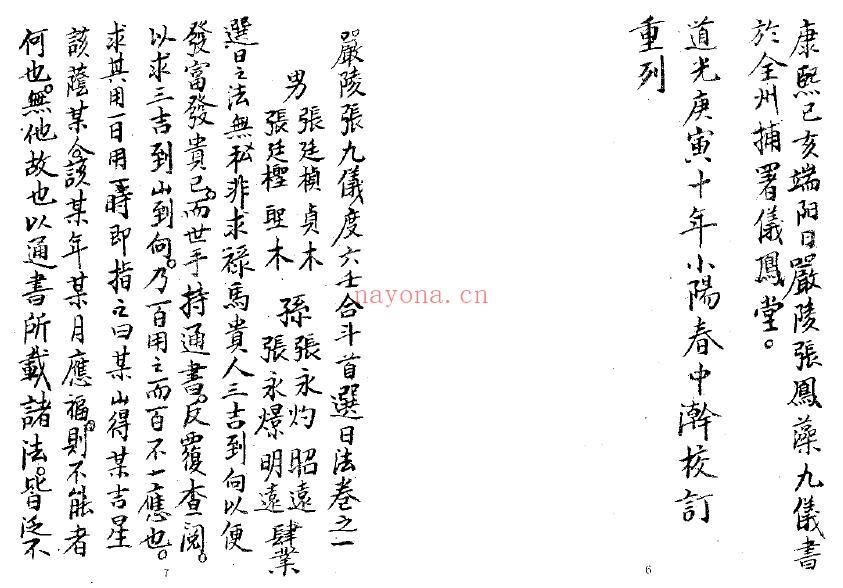 康熙己亥端阳日嚴陵張鳳藻九儀書
於全州捕署儀鳳堂。
道光庚寅十年小陽春中澣校訂
重列
6
嚴陵張九儀度六壬合斗首選日法卷之一
男 張廷楨貞木 孫 張永灼昭遠
張廷檉聖木 張永爆明遠 肆業
選日之法無私非求祿馬貴人三吉到向以便
發富發貴已。而世手持通書。反覆查阅。
以求三吉到山到向。乃百用之而百不一應也。
求其用一日用一時即指之曰某山得某吉星
該蔭某命該某年某月應福。則不能者
何也。無他故也以通書所載諸法。皆泛不
7
nayona.cn